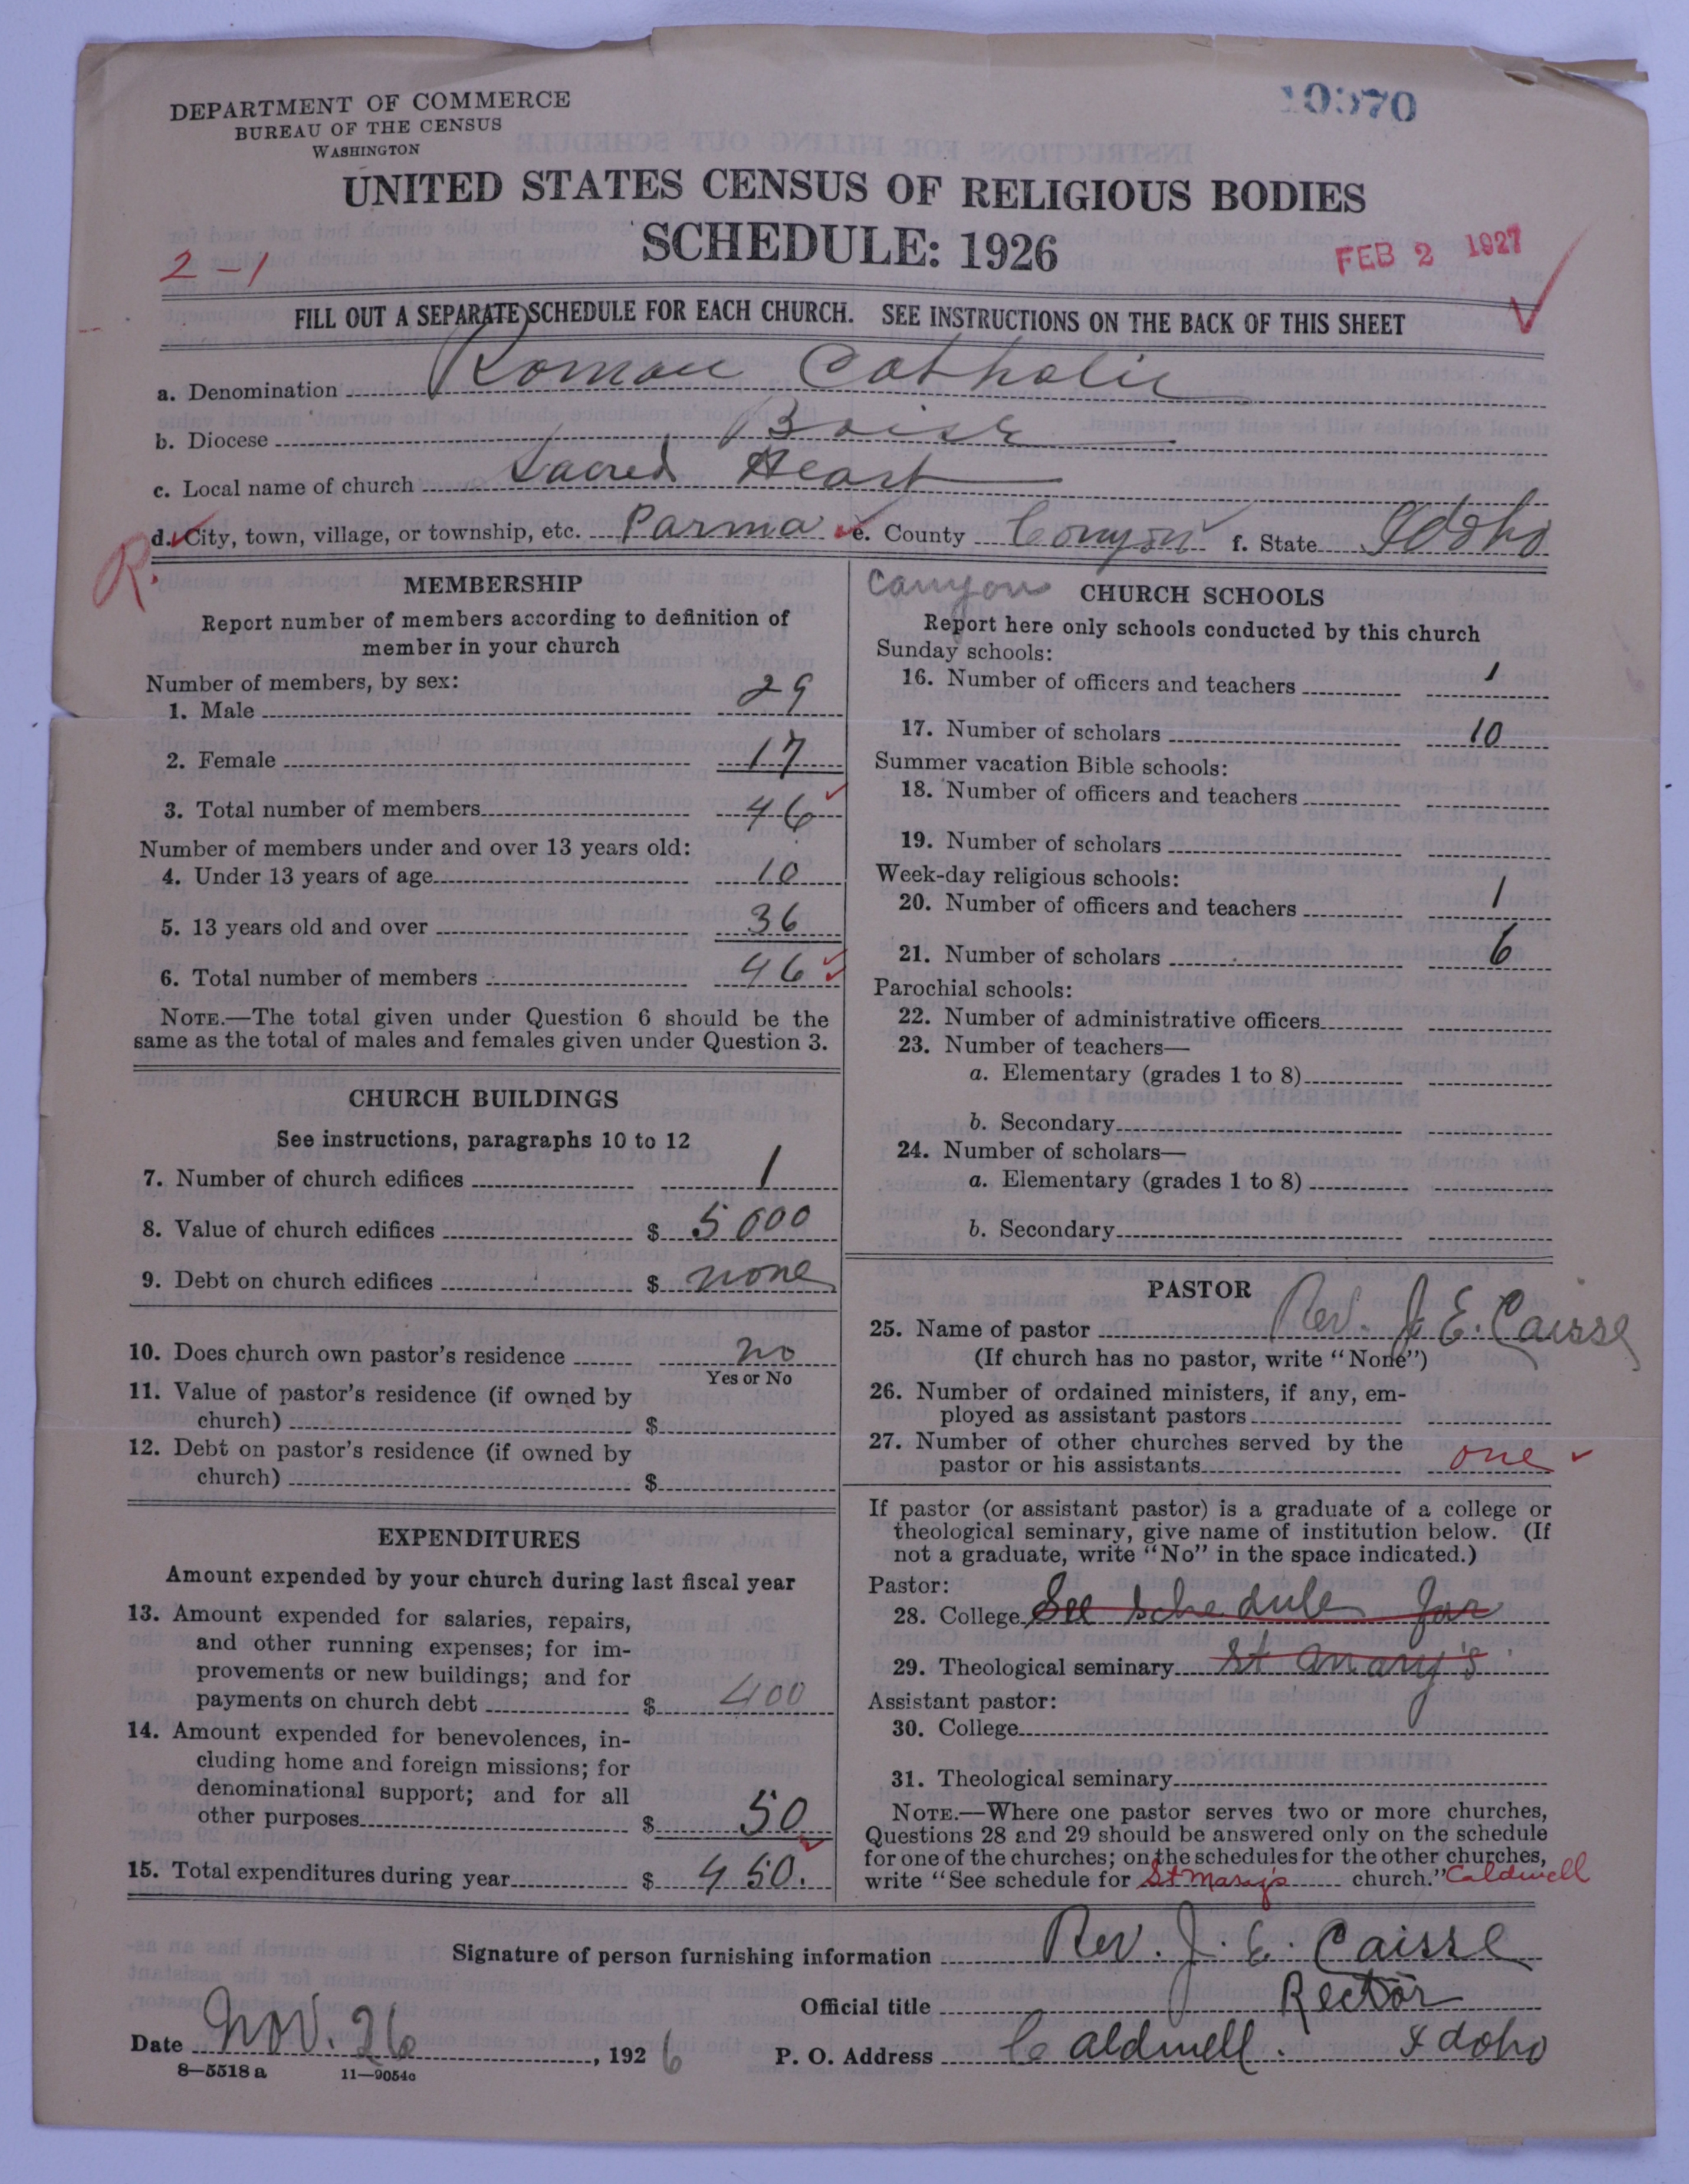 DEPARTMENT OF COMMERCE
BUREAU OF THE CENSUS
WASHINGTON
UNITED STATES CENSUS OF RELIGIOUS BODIES
SCHEDULE: 1926
2-1
FEB 2 1927
FILL OUT A SEPARATE SCHEDULE FOR EACH CHURCH. SEE INSTRUCTIONS ON THE BACK OF THIS SHEET
a. Denomination Roman Catholic
b. Diocese Boise
c. Local name of church Sacred Heart
d. City, town, village, or township, etc. Parma e. County Conyon f. State Idoho
R.
MEMBERSHIP
Report number of members according to definition of
member in your church
Number of members, by sex:
1. Male 29
2. Female 17
3. Total number of members 46
Number of members under and over 13 years old:
4. Under 13 years of age 10
5. 13 years old and over 36
6. Total number of members 46
NOTE.—The total given under Question 6 should be the
same as the total of males and females given under Question 3.
CHURCH BUILDINGS
See instructions, paragraphs 10 to 12
7. Number of church edifices 1
8. Value of church edifices $ 5000
9. Debt on church edifices $ none
10. Does church own pastor's residence no
Yes or No
11. Value of pastor's residence (if owned by
church) $
12. Debt on pastor's residence (if owned by
church) $
EXPENDITURES
Amount expended by your church during last fiscal year
13. Amount expended for salaries, repairs,
and other running expenses; for im-
provements or new buildings; and for
payments on church debt $ 400
14. Amount expended for benevolences, in-
cluding home and foreign missions; for
denominational support; and for all
other purposes $ 50
15. Total expenditures during year $ 450.
Canyon
CHURCH SCHOOLS
Report here only schools conducted by this church
Sunday schools:
16. Number of officers and teachers 1
17. Number of scholars 10
Summer vacation Bible schools:
18. Number of officers and teachers
19. Number of scholars
Week-day religious schools:
20. Number of officers and teachers 1
21. Number of scholars 6
Parochial schools:
22. Number of administrative officers
23. Number of teachers—
a. Elementary (grades 1 to 8)
b. Secondary
24. Number of scholars—
a. Elementary (grades 1 to 8)
b. Secondary
PASTOR
25. Name of pastor Rev. J. E. Caisse
(If church has no pastor, write "None")
26. Number of ordained ministers, if any, em-
ployed as assistant pastors
27. Number of other churches served by the
pastor or his assistants one
If pastor (or assistant pastor) is a graduate of a college or
theological seminary, give name of institution below. (If
not a graduate, write "No" in the space indicated.)
Pastor:
28. College See schedule for
29. Theological seminary St Mary's
Assistant pastor:
30. College
31. Theological seminary
NOTE.—Where one pastor serves two or more churches,
Questions 28 and 29 should be answered only on the schedule
for one of the churches; on the schedules for the other churches,
write "See schedule for St Mary's church." Caldwell
Signature of person furnishing information Rev. J. E. Caisse
Official title Rector
Date Nov. 26, 1926 P. O. Address Caldwell. Idoho
8—5518 a 11—9054a